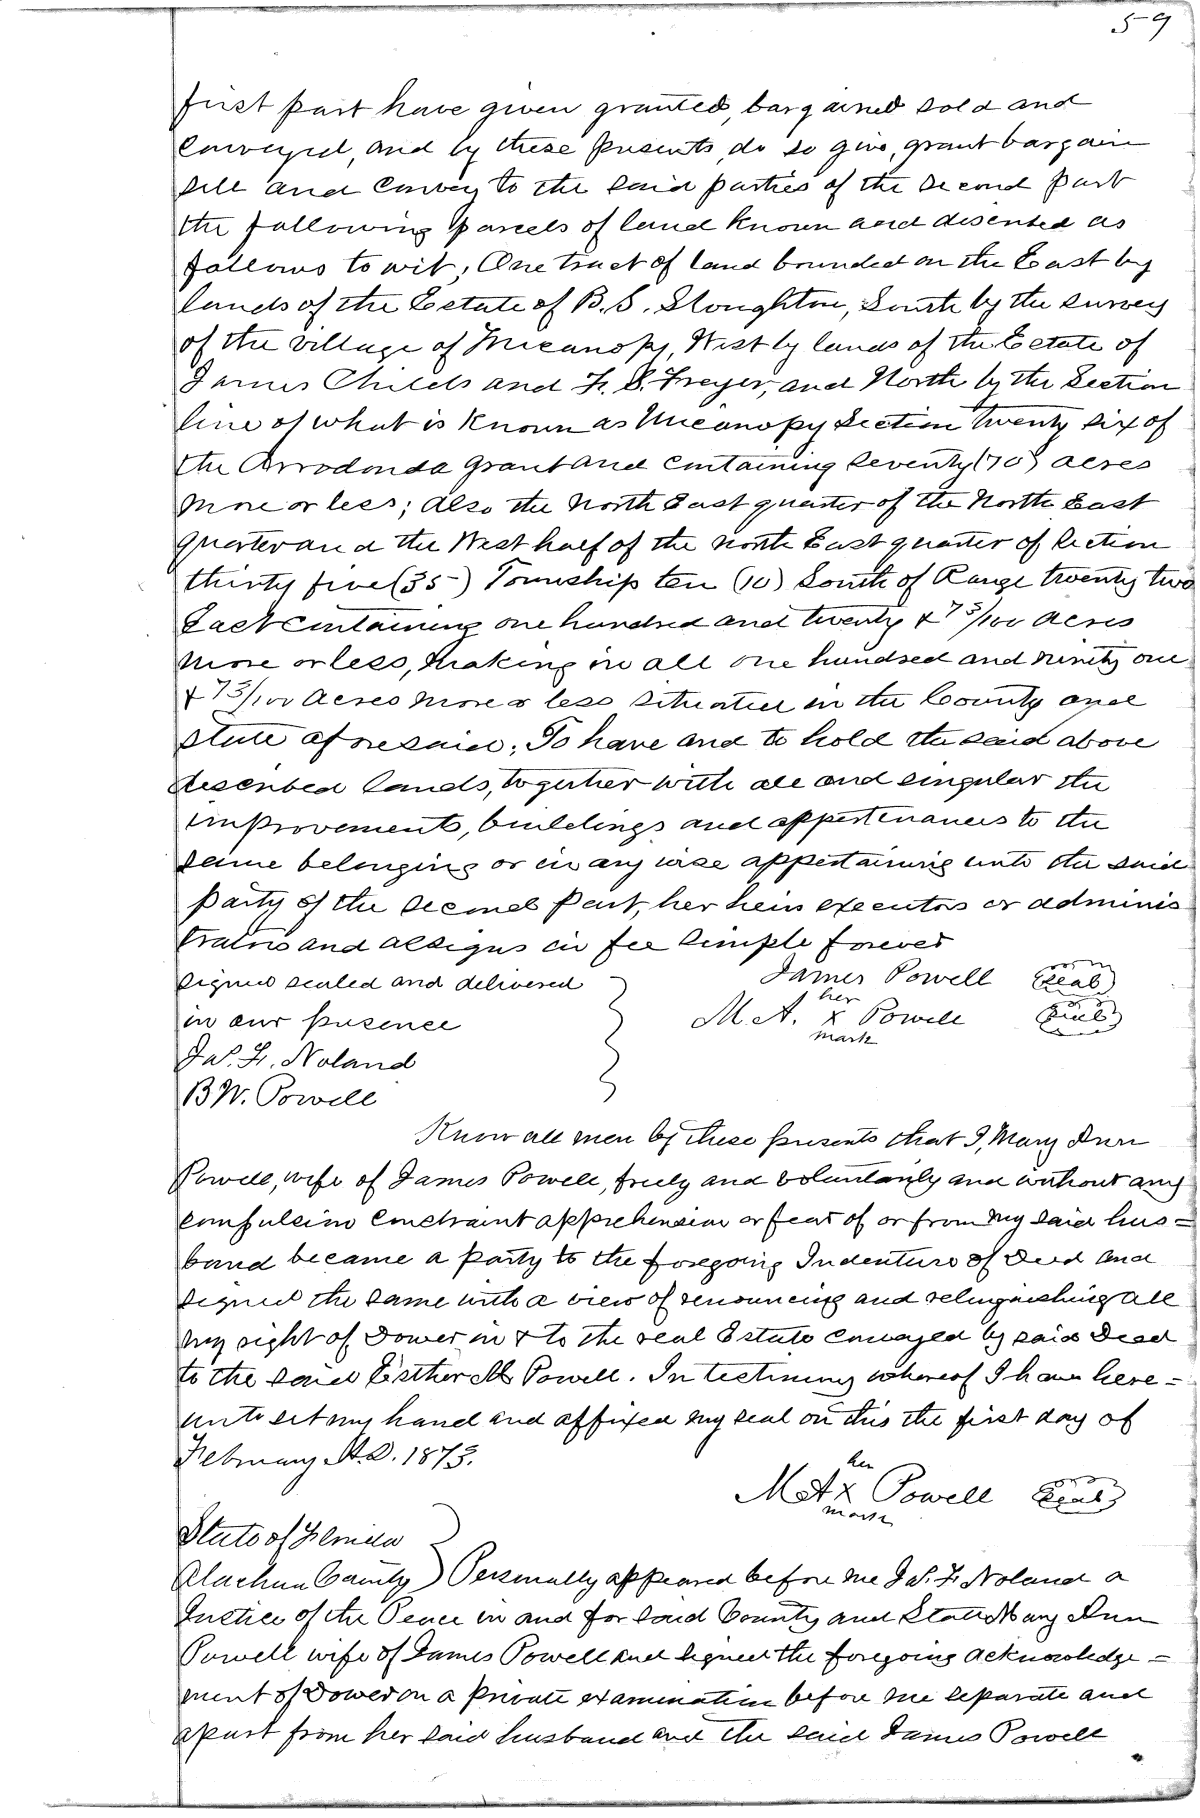 59
first part have given granted, bargained sold and
conveyed, and by these presents, do so give, grant bargain
sell and convey to the said parties of the second part
the following parcels of land known and described as
follows to wit; One tract of land bounded on the East by
lands of the Estate of B.S. Stoughton, South by the survey
of the village of Micanopy, West by lands of the Estate of
James Childs and F. S. Freyer, and North by the Section
line of what is known as Micanopy Section twenty six of
the Arrodonda grant and containing seventy (70) acres
more or less; also the North East quarter of the North East
quarter and the West half of the North East quarter of Section
thirty five (35) Township ten (10) South of Range twenty two
East containing one hundred and twenty & 73/100 acres
more or less, making in all one hundred and ninety one
& 73/100 acres more or less situated in the County and
state aforesaid; To have and to hold the said above
described lands, together with all and singular the
improvements, buildings and appertenances to the
same belonging or in any wise appertaining unto the said
party of the second part, her heirs executors or adminis
trators and assigns in fee simple forever
signed sealed and delivered James Powell (seal)
in our presence M. A. her x mark Powell (seal)
Jas. F. Noland
B W. Powell
Know all men by these presents that I, Mary Ann
Powell, wife of James Powell, freely and voluntarily and without any
compulsion constraint apprehension or fear of or from my said hus=
band became a party to the foregoing Indenture of Deed and
signed the same with a view of renouncing and relinquishing all
my right of Dower in & to the real Estate conveyed by said Deed
to the said Esther M Powell. In testimony whereof I have here=
unto set my hand and affixed my seal on this the first day of
February A.D. 1873.
M A her x mark Powell (Seal)
State of Florida
Alachua County } Personally appeared before me Jas. F. Noland a
Justice of the Peace in and for said County and State Mary Ann
Powell wife of James Powell and signed the foregoing acknowledge=
ment of Dower on a private examination before me separate and
apart from her said husband and the said James Powell